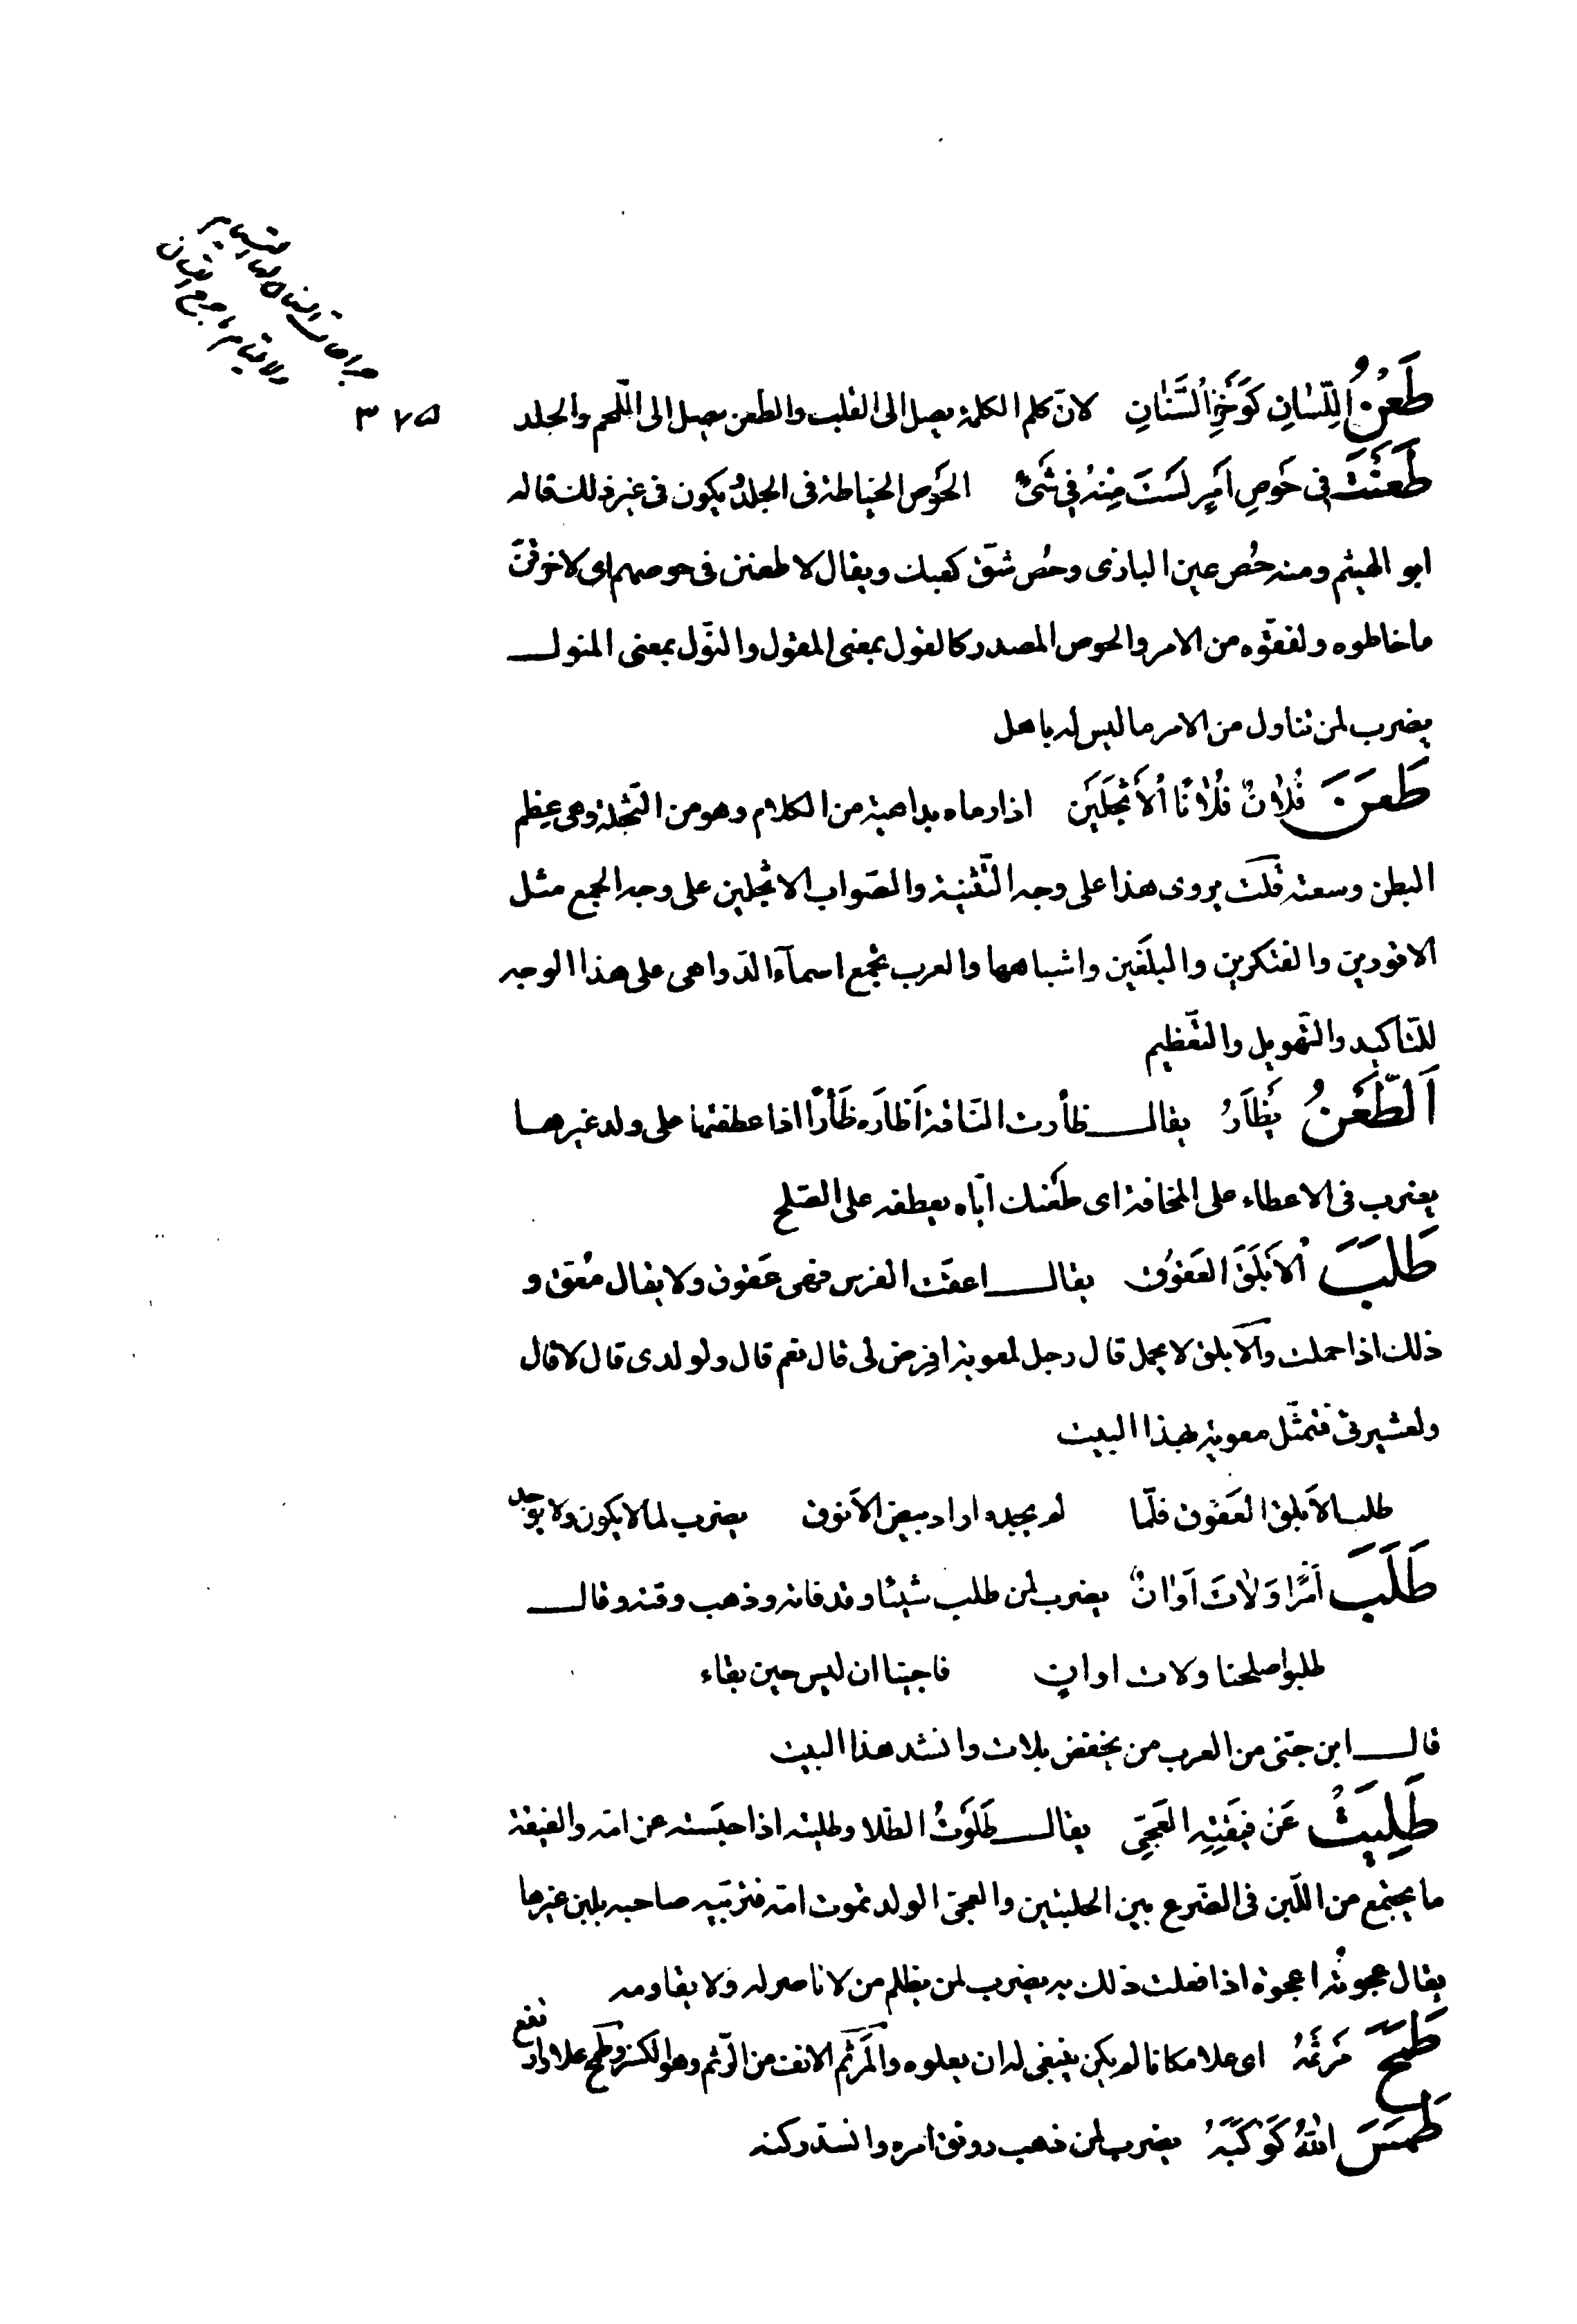 جراحات السنان لها التيام
ولا يلتام ما جرح اللسان
٣٧٥
طَعْنُ اللِّسَانِ كَوَخْزِ السِّنَانِ لانّ كلم الكلمة يصل الى القلب والطعن يصل الى اللّحم والجلد
طَعَنْتَ فى حَوصِ اَمْرٍ لَسْتَ مِنْهُ فِى شَىْءٍ الحَوص الخياطة فى الجلد ويكون فى غير ذلك قاله
ابو الهيثم ومنه حُص عين البازى وحُص شقّ كعبك ويقال لاطعنن فى حوصهم اى لاخرقنّ
ما خاطوه ولفقّوه من الامر والحوص المصدر كالقول بمعنى المقول والنّول بمعنى المنول
يضرب لمن تناول من الامر ما ليس له باهل
طَعَنَ فُلانٌ فُلانًا الاَثْجَلَيْنِ اذا رماه بداهية من الكلام وهو من الثّجلة وهى عِظم
البطن وسعته قلت يروى هذا على وجه التّثنية والصّواب الاثجلين على وجه الجمع مثل
الاقورين والفتكرين والبلغين واشباهها والعرب تجمع اسمآء الدّواهى على هذا الوجه
للتّاكيد والتّهويل والتّعظيم
اَلطَّعْنُ يَظْاَرُ يقال ظأرت النّاقة اَظْاَره ظَأْرًا اذا عطفتها على ولد غيرها
يضرب فى الاعطاء على المخافة اى طَعْنك ايّاه يعطفه على الصّلح
طَلَبَ الاَبْلَقَ العَقُوقَ يقال اعقّت الفرس فهى عَقوق ولا يقال مُعِقّ و
ذلك اذا حملت والابلق لا يحمل قال رجل لمعوية افرِض لى قال نعم قال ولولدى قال لا قال
ولعشيرتى فتمثّل معوية بهذا البيت
طلب الاَبلق العَقوق فلمّا لم يجده اراد بيض الاَنوق يضرب لما لا يكون ولا يوجد
طَلَبَ اَمْرًا وَلَاتَ اَوَانٍ يضرب لمن طلب شيئا وقد فاته وذهب وقته وقال
طلبوا صلحنا ولات اوانٍ فاجبنا ان ليس حين بقاء
قال ابن جنّى من العرب من يخفض بلات وانشد هذا البيت
طَلَيْتُ عَنْ فِيقَتِهِ العَجِىَّ يقال طَلَوْتُ الطّلا وطليته اذا حبَسته عن امّه والفيقة
ما يجتمع من اللّبن فى الضّرع بين الحلبتين والعجىّ الولد تموت امّه فتربّيه صاحبه بلبن غيرها
يقال عجوتُه اعجوه اذا فعلت ذلك به يضرب لمن يظلم من لا ناصر له ولا يقاومه
طَمَحَ مَرْثَمُهُ اى علا مكانا لم يكن ينبغى له ان يعلوه والمَرثَم الانف من الرّثم وهو الكسر وطمح علا وارتفع
طَمَسَ اللهُ كَوْكَبَهُ يضرب لمن ذهب رونق امره وانهدّ ركنه